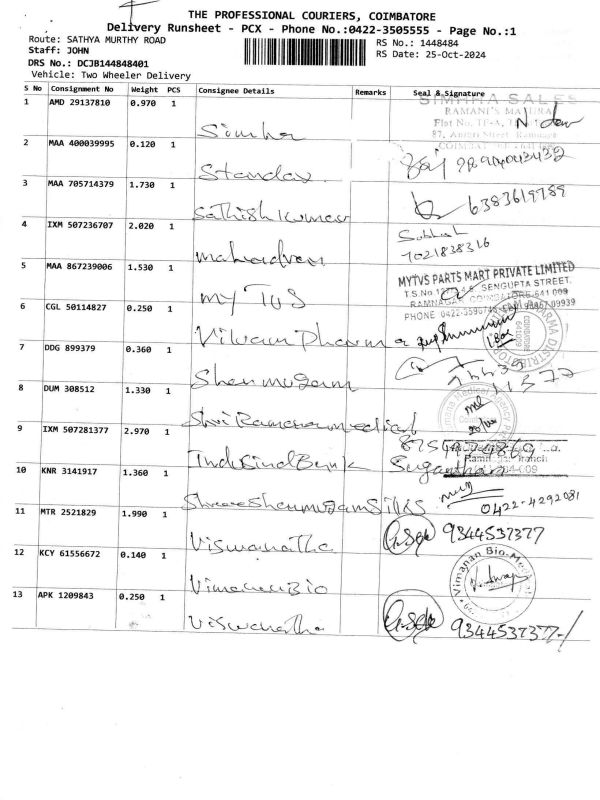 THE PROFESSIONAL COURIERS, COIMBATORE
Delivery Runsheet - PCX - Phone No.:0422-3505555 - Page No.:1
Route: SATHYA MURTHY ROAD
RS No.: 1448484
Staff: JOHN
RS Date: 25-Oct-2024
DRS No.: DCJB144848401
Vehicle: Two Wheeler Delivery
S No Consignment No Weight PCS Consignee Details Remarks Seal & Signature
1 AMD 29137810 0.970 1 Simha
SIMHA SALES
RAMANI'S MAYURA
2 MAA 400039995 0.120 1 Standax
3 MAA 705714379 1.730 1 Sathish Kumar 6383619789
4 IXM 507236707 2.020 1 mahadven
7021838316
5 MAA 867239006 1.530 1 my TVS
MYTVS PARTS MART PRIVATE LIMITED
SENGUPTA STREET,
RAMNAGAR, COIMBATORE-641 009
6 CGL 50114827 0.250 1 Vilvam Pharma
7 DDG 899379 0.360 1 Shanmugam
8 DUM 308512 1.330 1 Shri Ramana medical
9 IXM 507281377 2.970 1 IndusInd Bank
10 KNR 3141917 1.360 1 Shree Shanmugam Silks 0422-4292081
11 MTR 2521829 1.990 1 Viswanatha 9344537377
12 KCY 61556672 0.140 1 Vimanan Bio
Vimanan Bio-Medical
13 APK 1209843 0.250 1 Viswanatha 9344537377-/